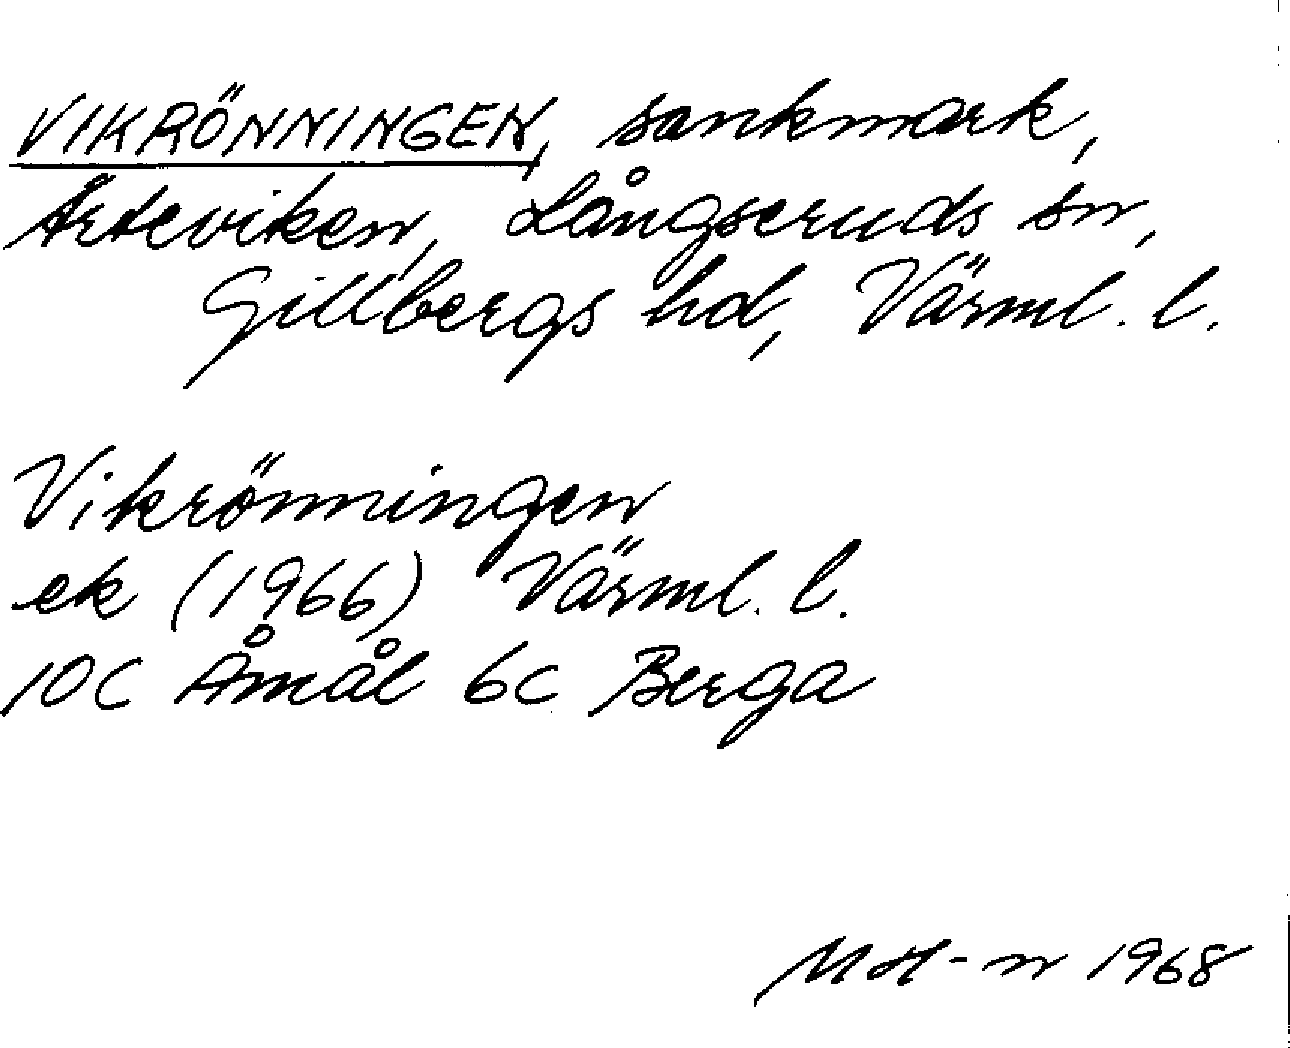 VIKRÖNNINGEN, sankmark,
Årteviken, Långseruds sn,
Gillbergs hd, Värml. l.
Vikrönningen
ek (1966) Värml. l.
10C Åmål 6c Berga
MH-n 1968